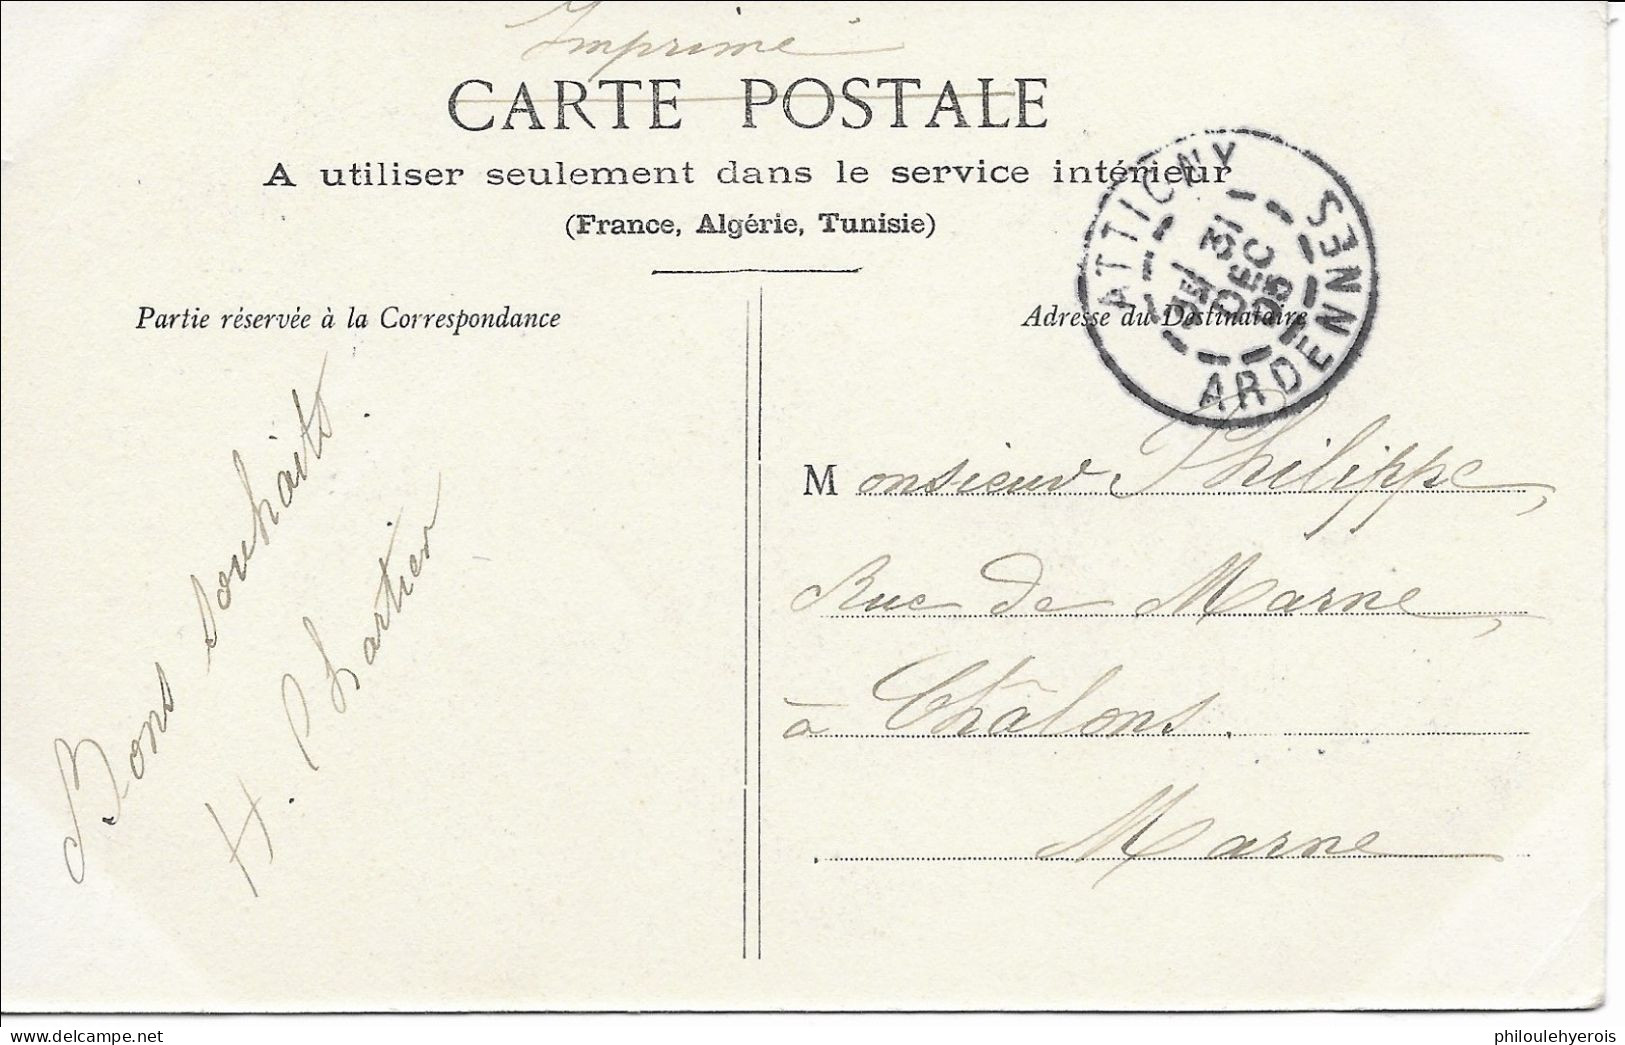 Imprimé
CARTE POSTALE
A utiliser seulement dans le service intérieur
(France, Algérie, Tunisie)
Partie réservée à la Correspondance
Adresse du Destinataire
ATTIGNY
31
DEC
05
ARDENNES
Bons souhaits.
H. Chartier
Monsieur Philippe,
Rue de Marne,
à Châlons.
Marne
philoulehyerois